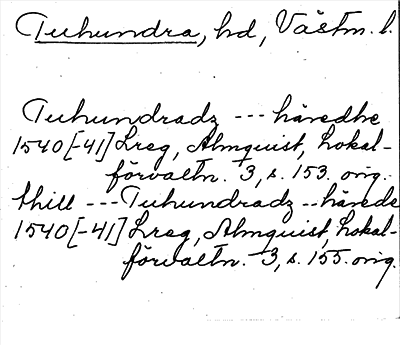 Tuhundra, hd, Västm. l.
Tuhundradz --- häredhe
1540[-41] Lreg, Almquist, Lokal-
förvaltn. 3, s. 153. orig.
thill --- Tuhundradz -- härede
1540[-41] Lreg, Almquist, Lokal-
förvaltn. 3, s. 155. orig.